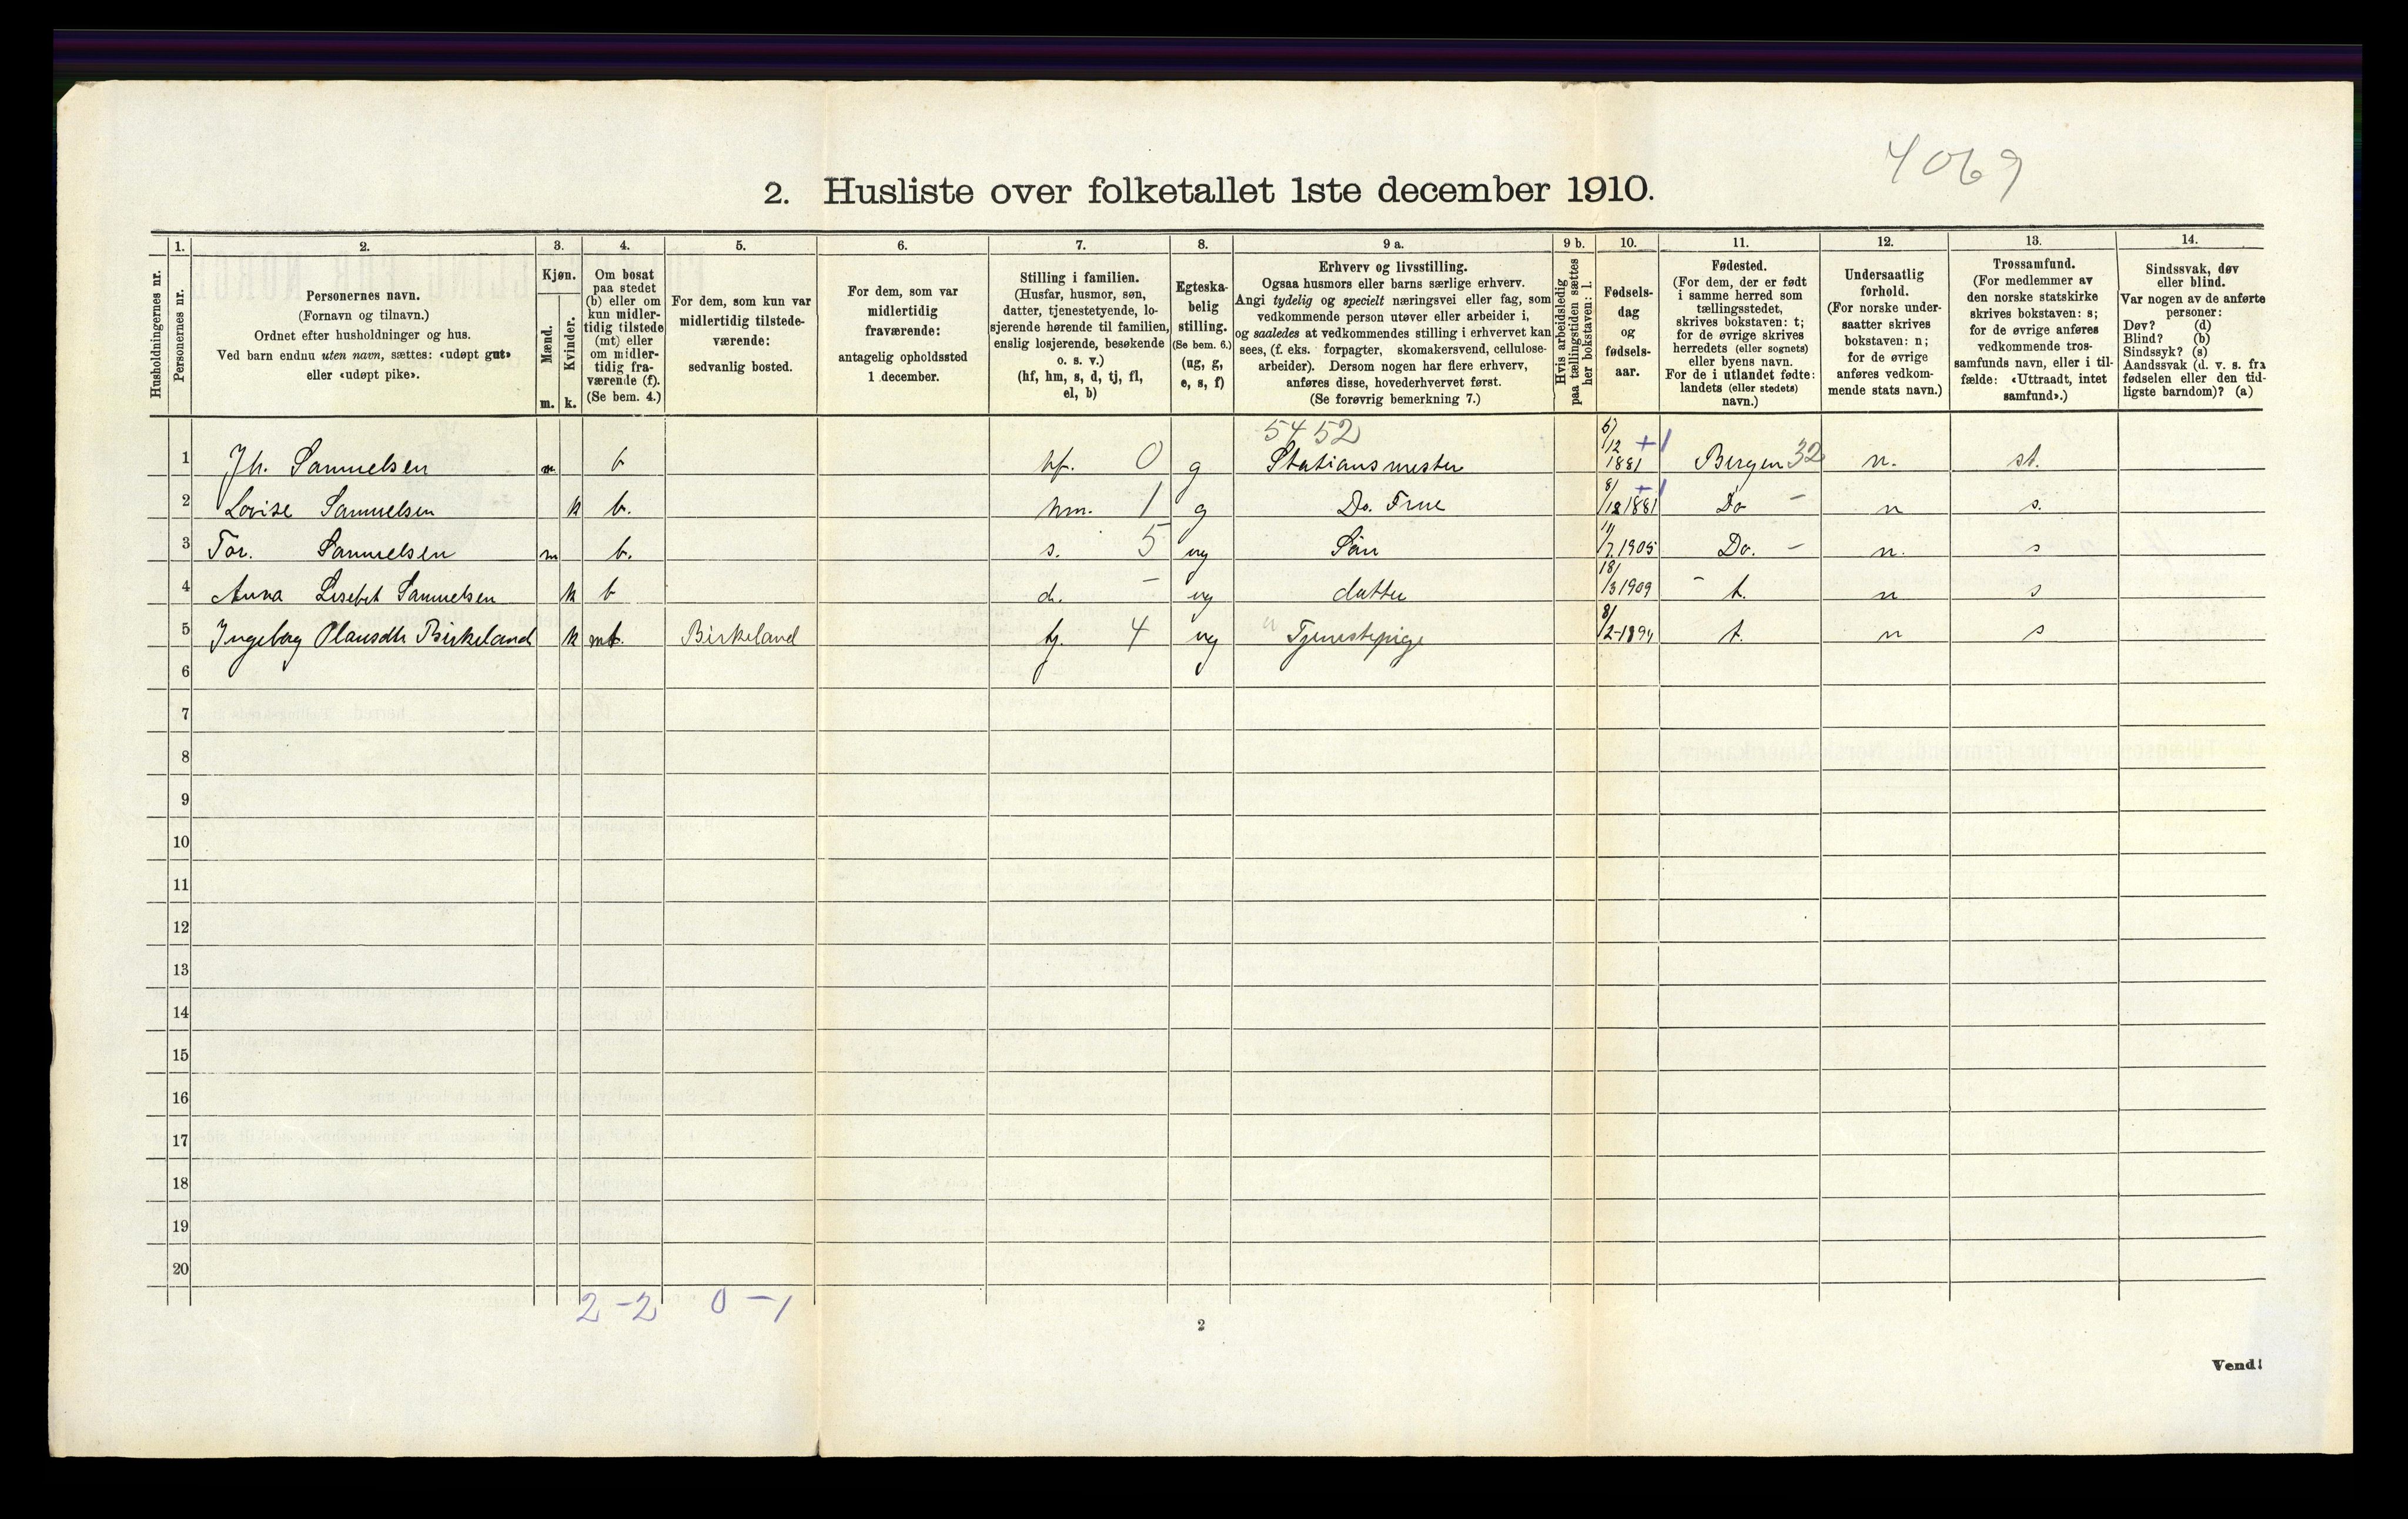 4069
2. Husliste over folketallet 1ste december 1910.
Husholdningernes nr.
1.
Personernes nr.
2.
Personernes navn.
(Fornavn og tilnavn.)
Ordnet efter husholdninger og hus.
Ved barn endnu uten navn, sættes: «udøpt gut»
eller «udøpt pike».
3.
Kjøn.
Mænd.
Kvinder.
m. k.
4.
Om bosat
paa stedet
(b) eller om
kun midler-
tidig tilstede
(mt) eller
om midler-
tidig fra-
værende (f).
(Se bem. 4.)
5.
For dem, som kun var
midlertidig tilstede-
værende:
sedvanlig bosted.
6.
For dem, som var
midlertidig
fraværende:
antagelig opholdssted
1 december.
7.
Stilling i familien.
(Husfar, husmor, søn,
datter, tjenestetyende, lo-
sjerende hørende til familien,
enslig losjerende, besøkende
o. s. v.)
(hf, hm, s, d, tj, fl,
el, b)
8.
Egteska-
belig
stilling.
(Se bem. 6.)
(ug, g,
e, s, f)
9 a.
Erhverv og livsstilling.
Ogsaa husmors eller barns særlige erhverv.
Angi tydelig og specielt næringsvei eller fag, som
vedkommende person utøver eller arbeider i,
og saaledes at vedkommendes stilling i erhvervet kan
sees, (f. eks. forpagter, skomakersvend, cellulose-
arbeider). Dersom nogen har flere erhverv,
anføres disse, hovederhvervet først.
(Se forøvrig bemerkning 7.)
9 b.
Hvis arbeidsledig
paa tællingstiden sættes
her bokstaven: l.
10.
Fødsels-
dag
og
fødsels-
aar.
11.
Fødested.
(For dem, der er født
i samme herred som
tællingsstedet,
skrives bokstaven: t;
for de øvrige skrives
herredets (eller sognets)
eller byens navn.
For de i utlandet fødte:
landets (eller stedets)
navn.)
12.
Undersaatlig
forhold.
(For norske under-
saatter skrives
bokstaven: n;
for de øvrige
anføres vedkom-
mende stats navn.)
13.
Trossamfund.
(For medlemmer av
den norske statskirke
skrives bokstaven: s;
for de øvrige anføres
vedkommende tros-
samfunds navn, eller i til-
fælde: «Uttraadt, intet
samfund».)
14.
Sindssvak, døv
eller blind.
Var nogen av de anførte
personer:
Døv? (d)
Blind? (b)
Sindssyk? (s)
Aandssvak (d. v. s. fra
fødselen eller den tid-
ligste barndom)? (a)
5452
1 Jh. Samuelsen m b hf. 0 g Stationsmester 5/12 1881 +1 Bergen 32 n. st.
2 Lovise Samuelsen k b. hm. 1 g Do. Frue 8/12 1881 +1 Do – n s.
3 Tor. Samuelsen m b. s. 5 ug Sön 11/7 1905 Do. – n. s
4 Anna Lisebet Samuelsen k b d. – ug datter 18/3 1909 – t. n s
5 Ingeborg Olausdtr Birkeland k mt. Birkeland tj. 4 ug Tjenestepige 8/2-1894 t. n s
6
7
8
9
10
11
12
13
14
15
16
17
18
19
20
2 – 2 0 – 1
2
Vend!